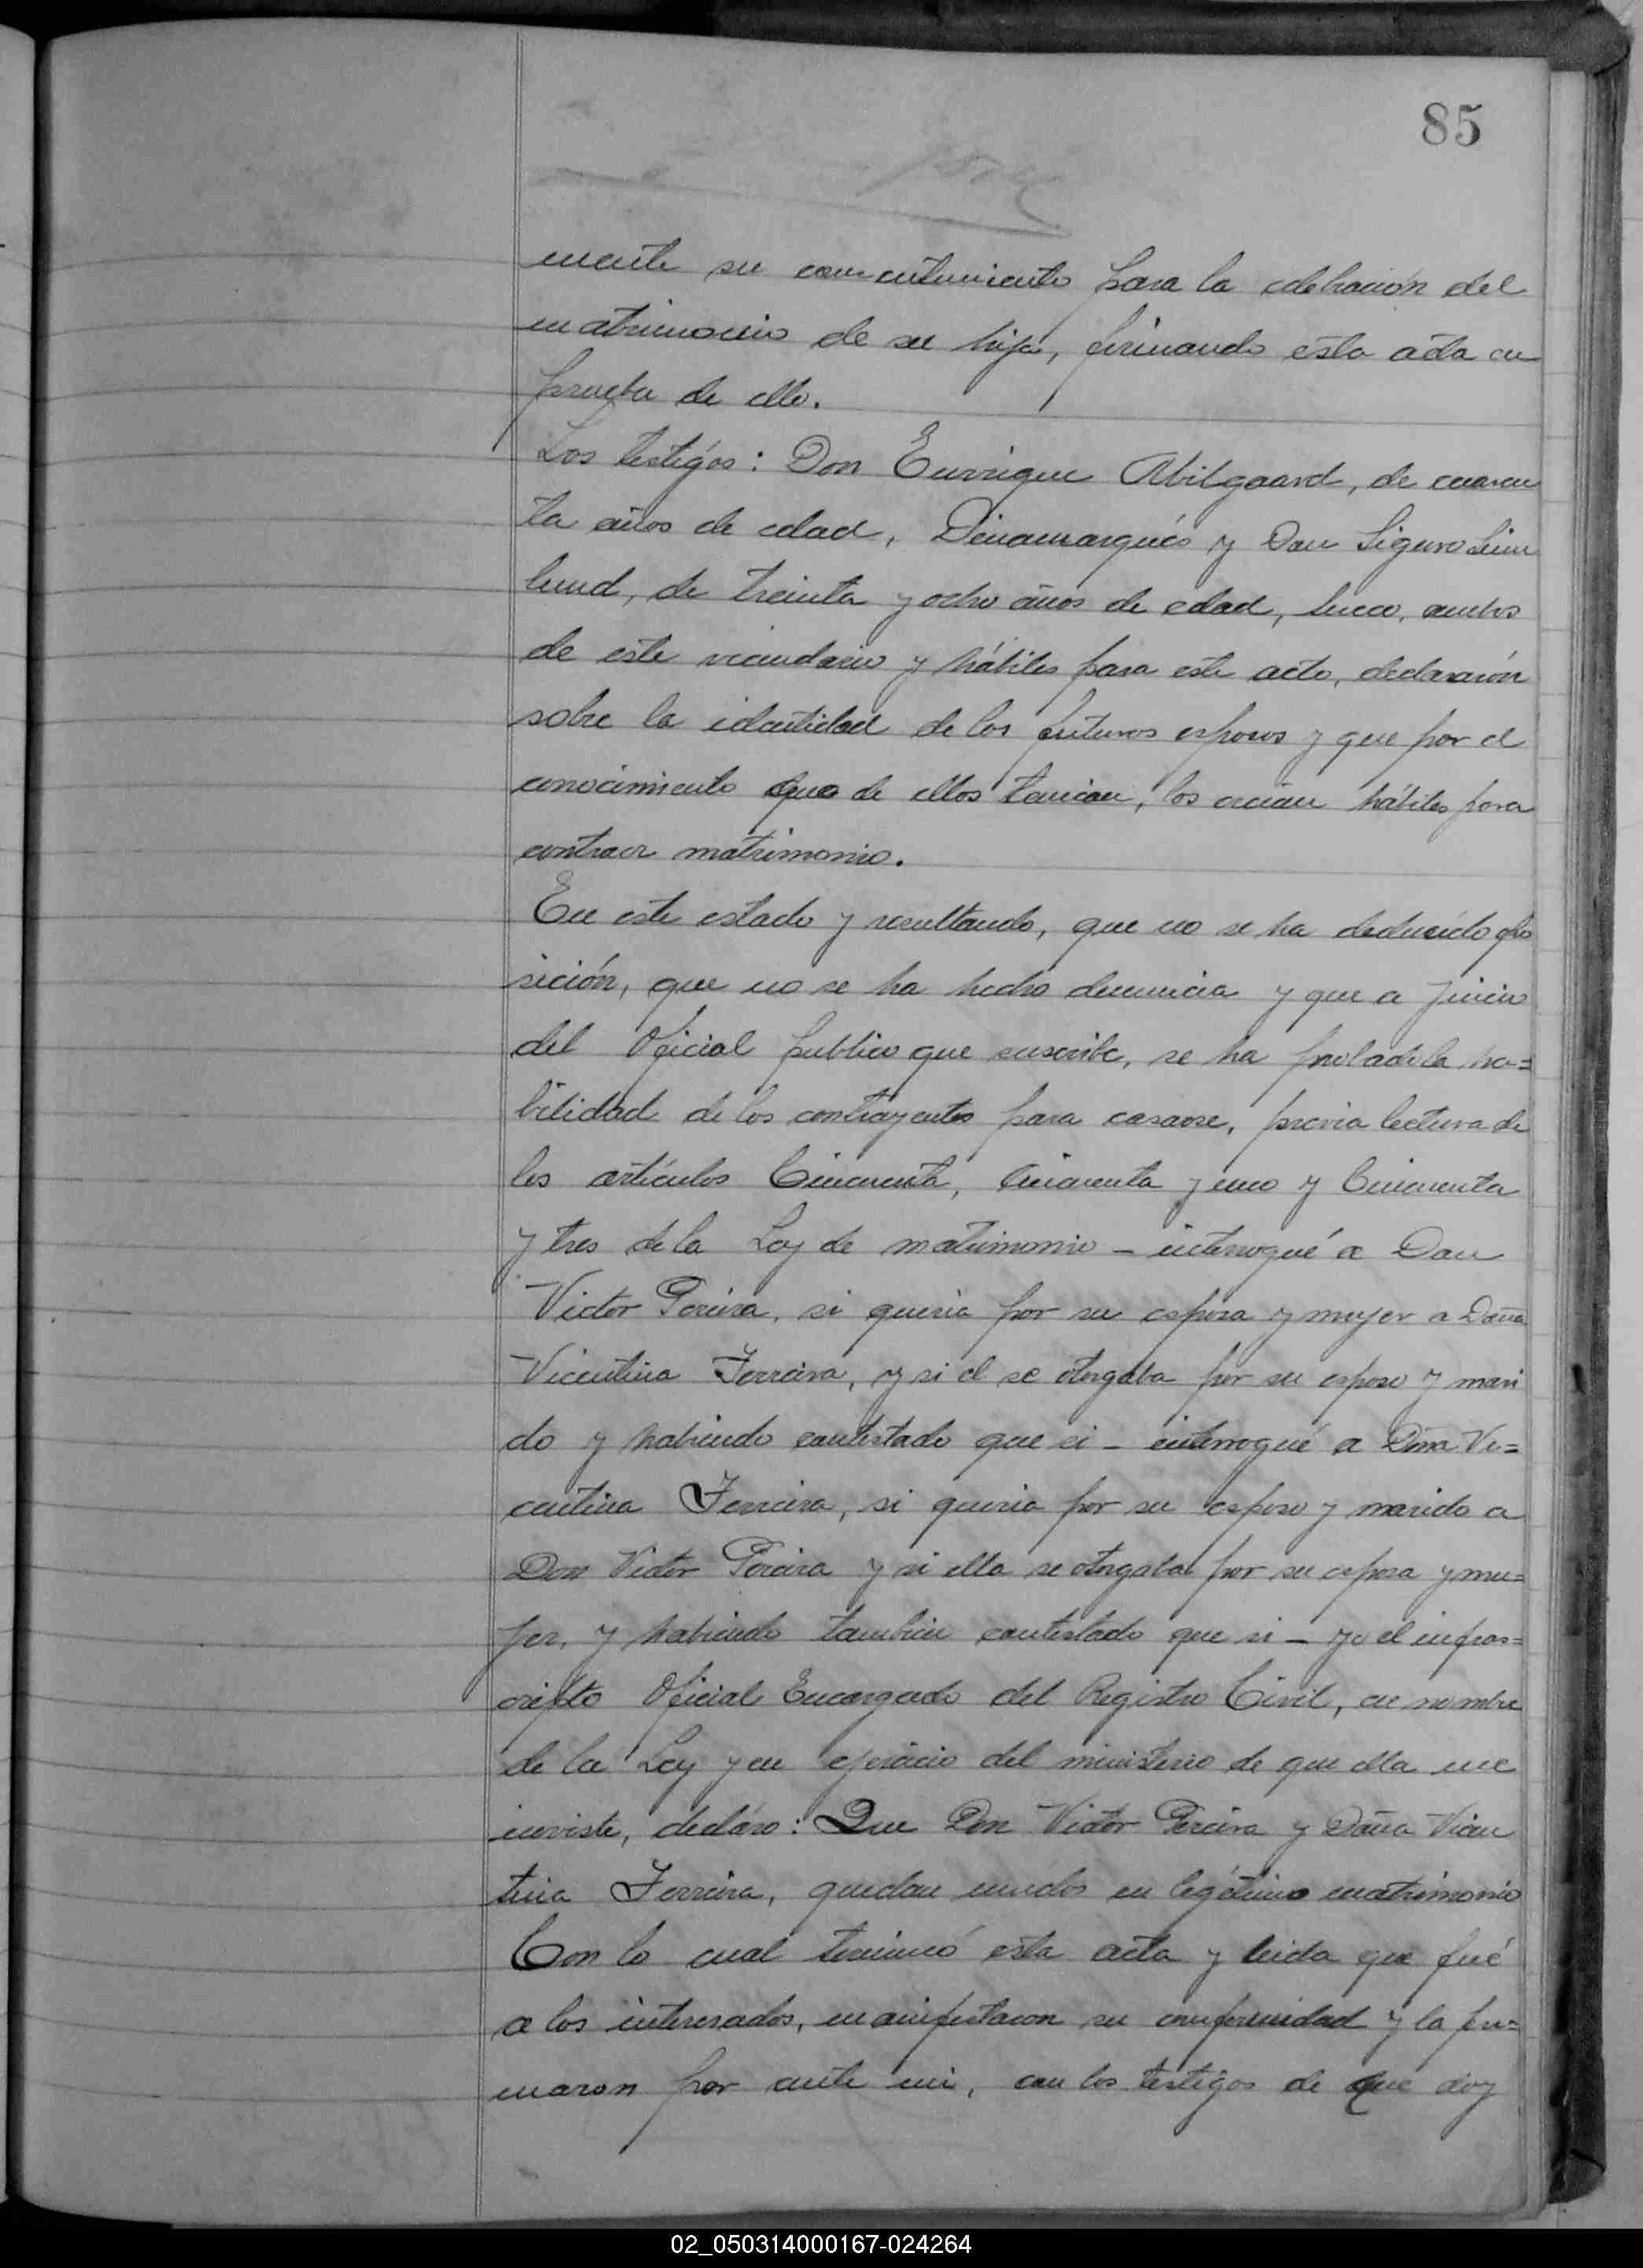 85
mente su consentimiento para la celebración del
matrimonio de su hija, firmando esta acta en
prueba de ello.
Los testigos: Don Enrrique Abilgaard, de cuaren
ta años de edad, Dinamarqués y Don Siguro Lim
lund, de treinta y ocho años de edad, sueco, ambos
de este vecindario y hábiles para este acto, declararón
sobre la identidad de los futuros esposos y que por el
conocimiento que de ellos tenian, los creian hábiles para
contraer matrimonio.
En este estado y resultando, que no se ha deducido opo
sición, que no se ha hecho denuncia y que a juicio
del Oficial publico que suscribe, se ha probado la ha=
bilidad de los contrayentes para casarse, previa lectura de
los artículos Cincuenta, Cincuenta y uno y Cincuenta
y tres de la Ley de matrimonio - interrogué a Don
Victor Pereira, si queria por su esposa y mujer a Doña
Vicentina Ferreira, y si el se otorgaba por su esposo y mari
do y habiendo contestado que si - interrogué a Doña Vi=
centina Ferreira, si queria por su esposo y marido a
Don Victor Pereira y si ella se otorgaba por su esposa y mu=
jer, y habiendo tambien contestado que si - yo el infras=
cripto Oficial Encargado del Registro Civil, en nombre
de la Ley y en ejercicio del ministerio de que ella me
inviste, decláro: Que Don Victor Pereira y Doña Vicen
tina Ferreira, quedan unidos en legítimo matrimonio
Con lo cual terminó esta acta y leida que fué
a los interesados, manifestaron su conformidad y la fir=
maron por ante mi, con los testigos de que doy
02_050314000167-024264